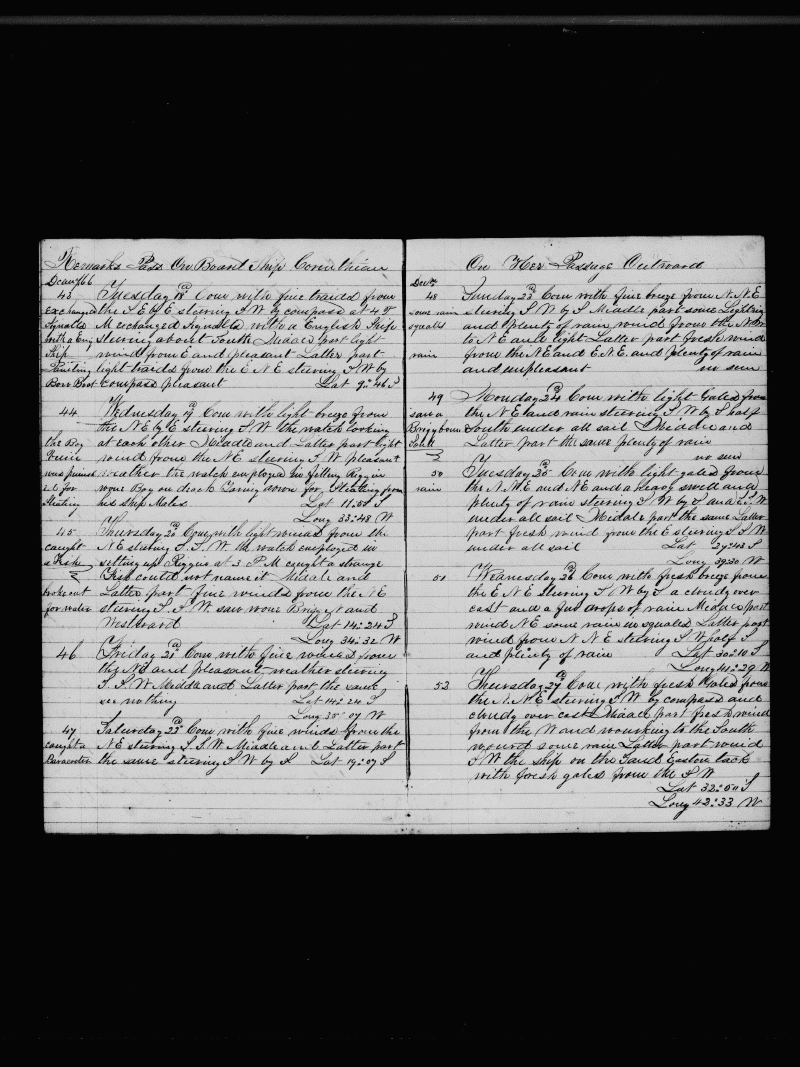 Remarks Pass On Board Ship Corinthian
Decm 1866
43 Tuesday 18 Com with fine traids from
exchanged the S E by E steering S. W by compass at 4 P
Signalls M exchanged Signalls with a English Ship
with a Eng Steering about South Middle part light
Ship wind from E and pleasant Latter part
Painting light traids from the E N E steering S W by
Bow Boat compass pleasant Lat 9:46 S
44 Wednesday 19 Com with light breze from
the N E by E steering S. W. the watch looking
the Boy at each other Middle and Latter part light
wind from the N E steering S. W pleasant
was punish weather the watch employed in
ed for wone Boy on deack for Steating from
Steating his Ship Mates Lat 11:58 S
Long 33:48 W
45 Thursday 20 Com with light winds from the
caught N E steering S. S. W the watch employed in
a Fish setting up Riggin at 3 P M caught a strange
Fish could not name it Middle and
broke out Latter part fine winds from the N E
for water steering S. S. W. saw wone Brig N and
Westward Lat 14:24 S
Long 34:32 W
46 Friday 21 Com with fine winds from
the N E and pleasant weather steering
S. S. W Middle and Latter part the same
see nothing Lat 14:24 S
Long 35:07 W
47 Saturday 22 Com with fine winds from the
caught a N E steering S. S. W. Middle and Latter part
Baracooter the same steering S W by S Lat 19:07 S
On Her Passage Outward
Decm
48 Sunday 23 Com with fine breze from N. N. E
some rain steering S W by S Middle part some Lighting
squalls and plenty of rain wind from the
to N E and light Latter part fresh wind
rain from the N E and E N E. and plenty of rain
and unpleasant no sun
49 Monday 24 Com with light Gales from
saw a the N E and rain steering S W by S half
Brigg bound South under all sail Middle and
South Latter part the same plenty of rain
no sun
50 Tuesday 25 Com with light gales from
rain the N. N E and N E and a heavy swell and
plenty of rain steering S. W by S and S. S. W
under all sail Middle part the same Latter
part fresh wind from the E steering S S W
under all sail Lat 29:43 S
Long 39:30 W
51 Wednesday 26 Com with fresh breze from
the E N E Steering S W by S a cloudy over
cast and a few drops of rain Middle part
wind N E some rain in squales Latter part
wind from N N E steering S W half S
and plenty of rain Lat 30:10 S
Long 41:29 W
52 Thursday 27 Com with fresh Gales from
the N. N E steering S W by compass and
cloudy over cast Middle part fresh wind
from the W and wourking to the South
wourd some rain Latter part wind
S W the ship on the S and Easton tack
with fresh gales from the S W
Lat 32:50 S
Long 42:33 W